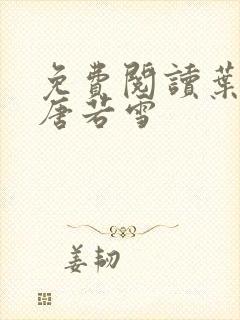 免費閱讀葉
唐若雪
姜韌